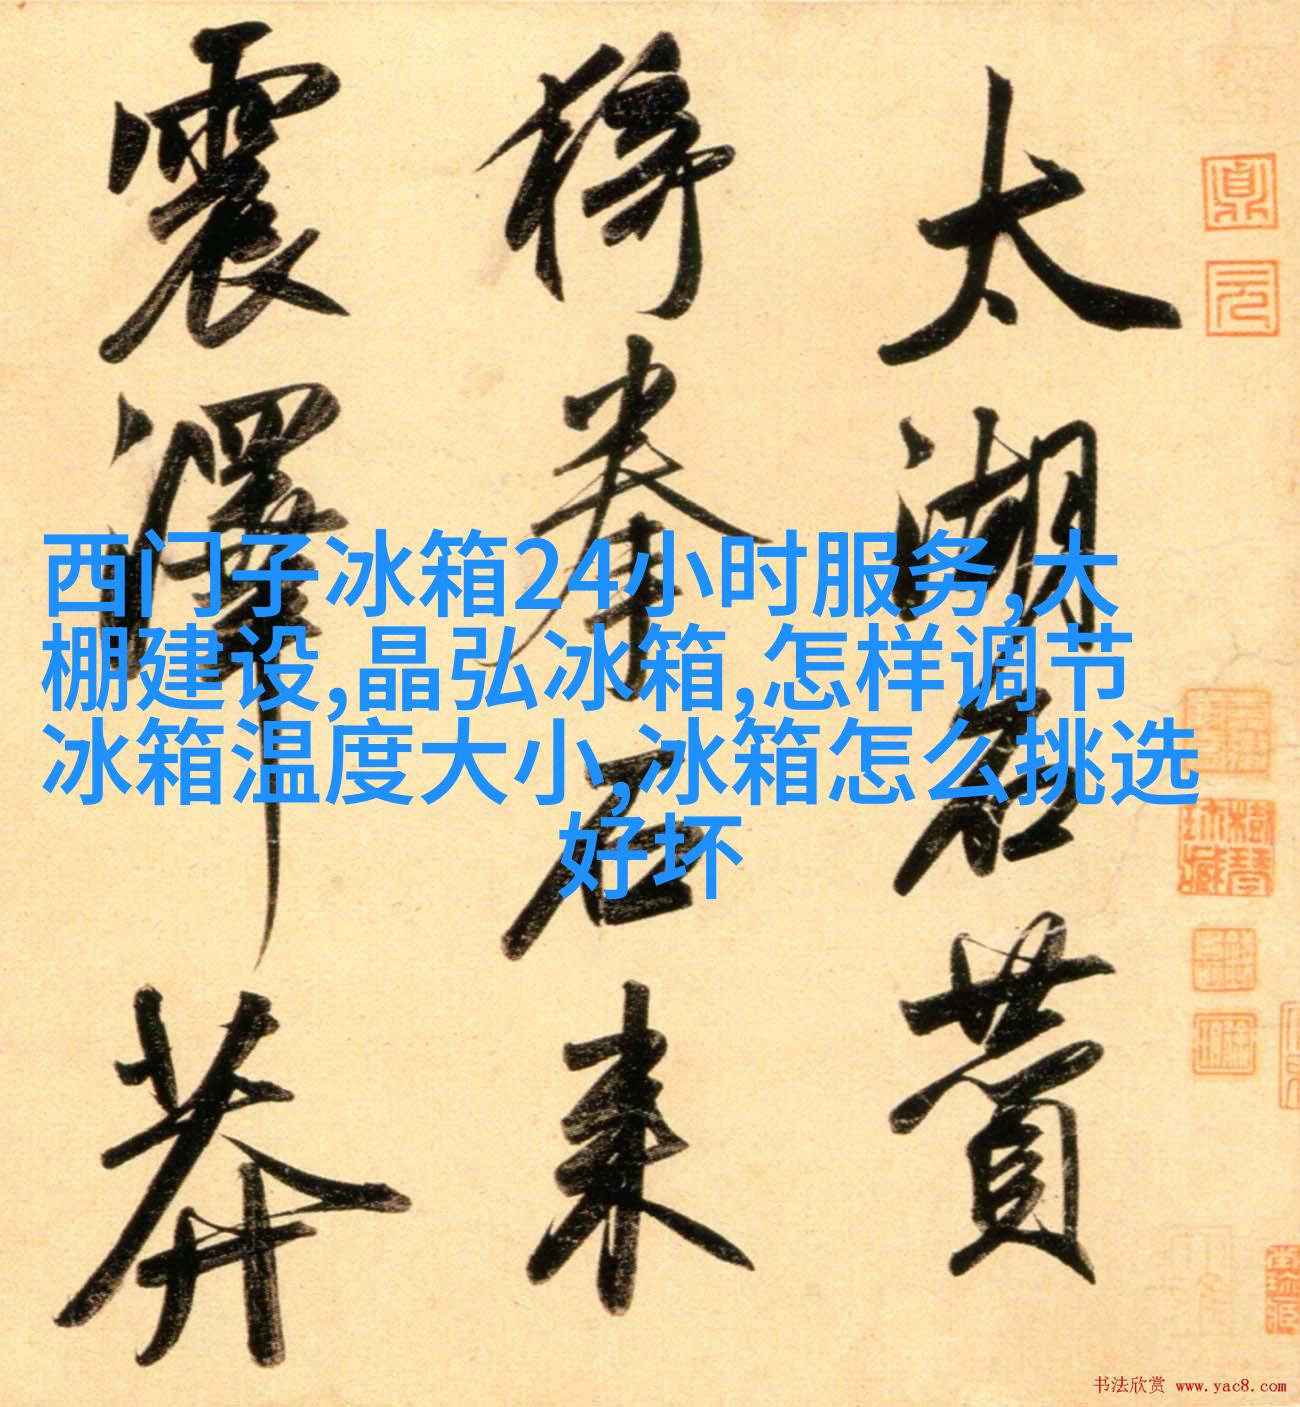 西门子冰箱24小时服务,大
棚建设,晶弘冰箱,怎样调节
冰箱温度大小,冰箱怎么挑选
好坏
太湖石贊
猗拳石来
震澤莽
书法欣赏 www.yac8.com